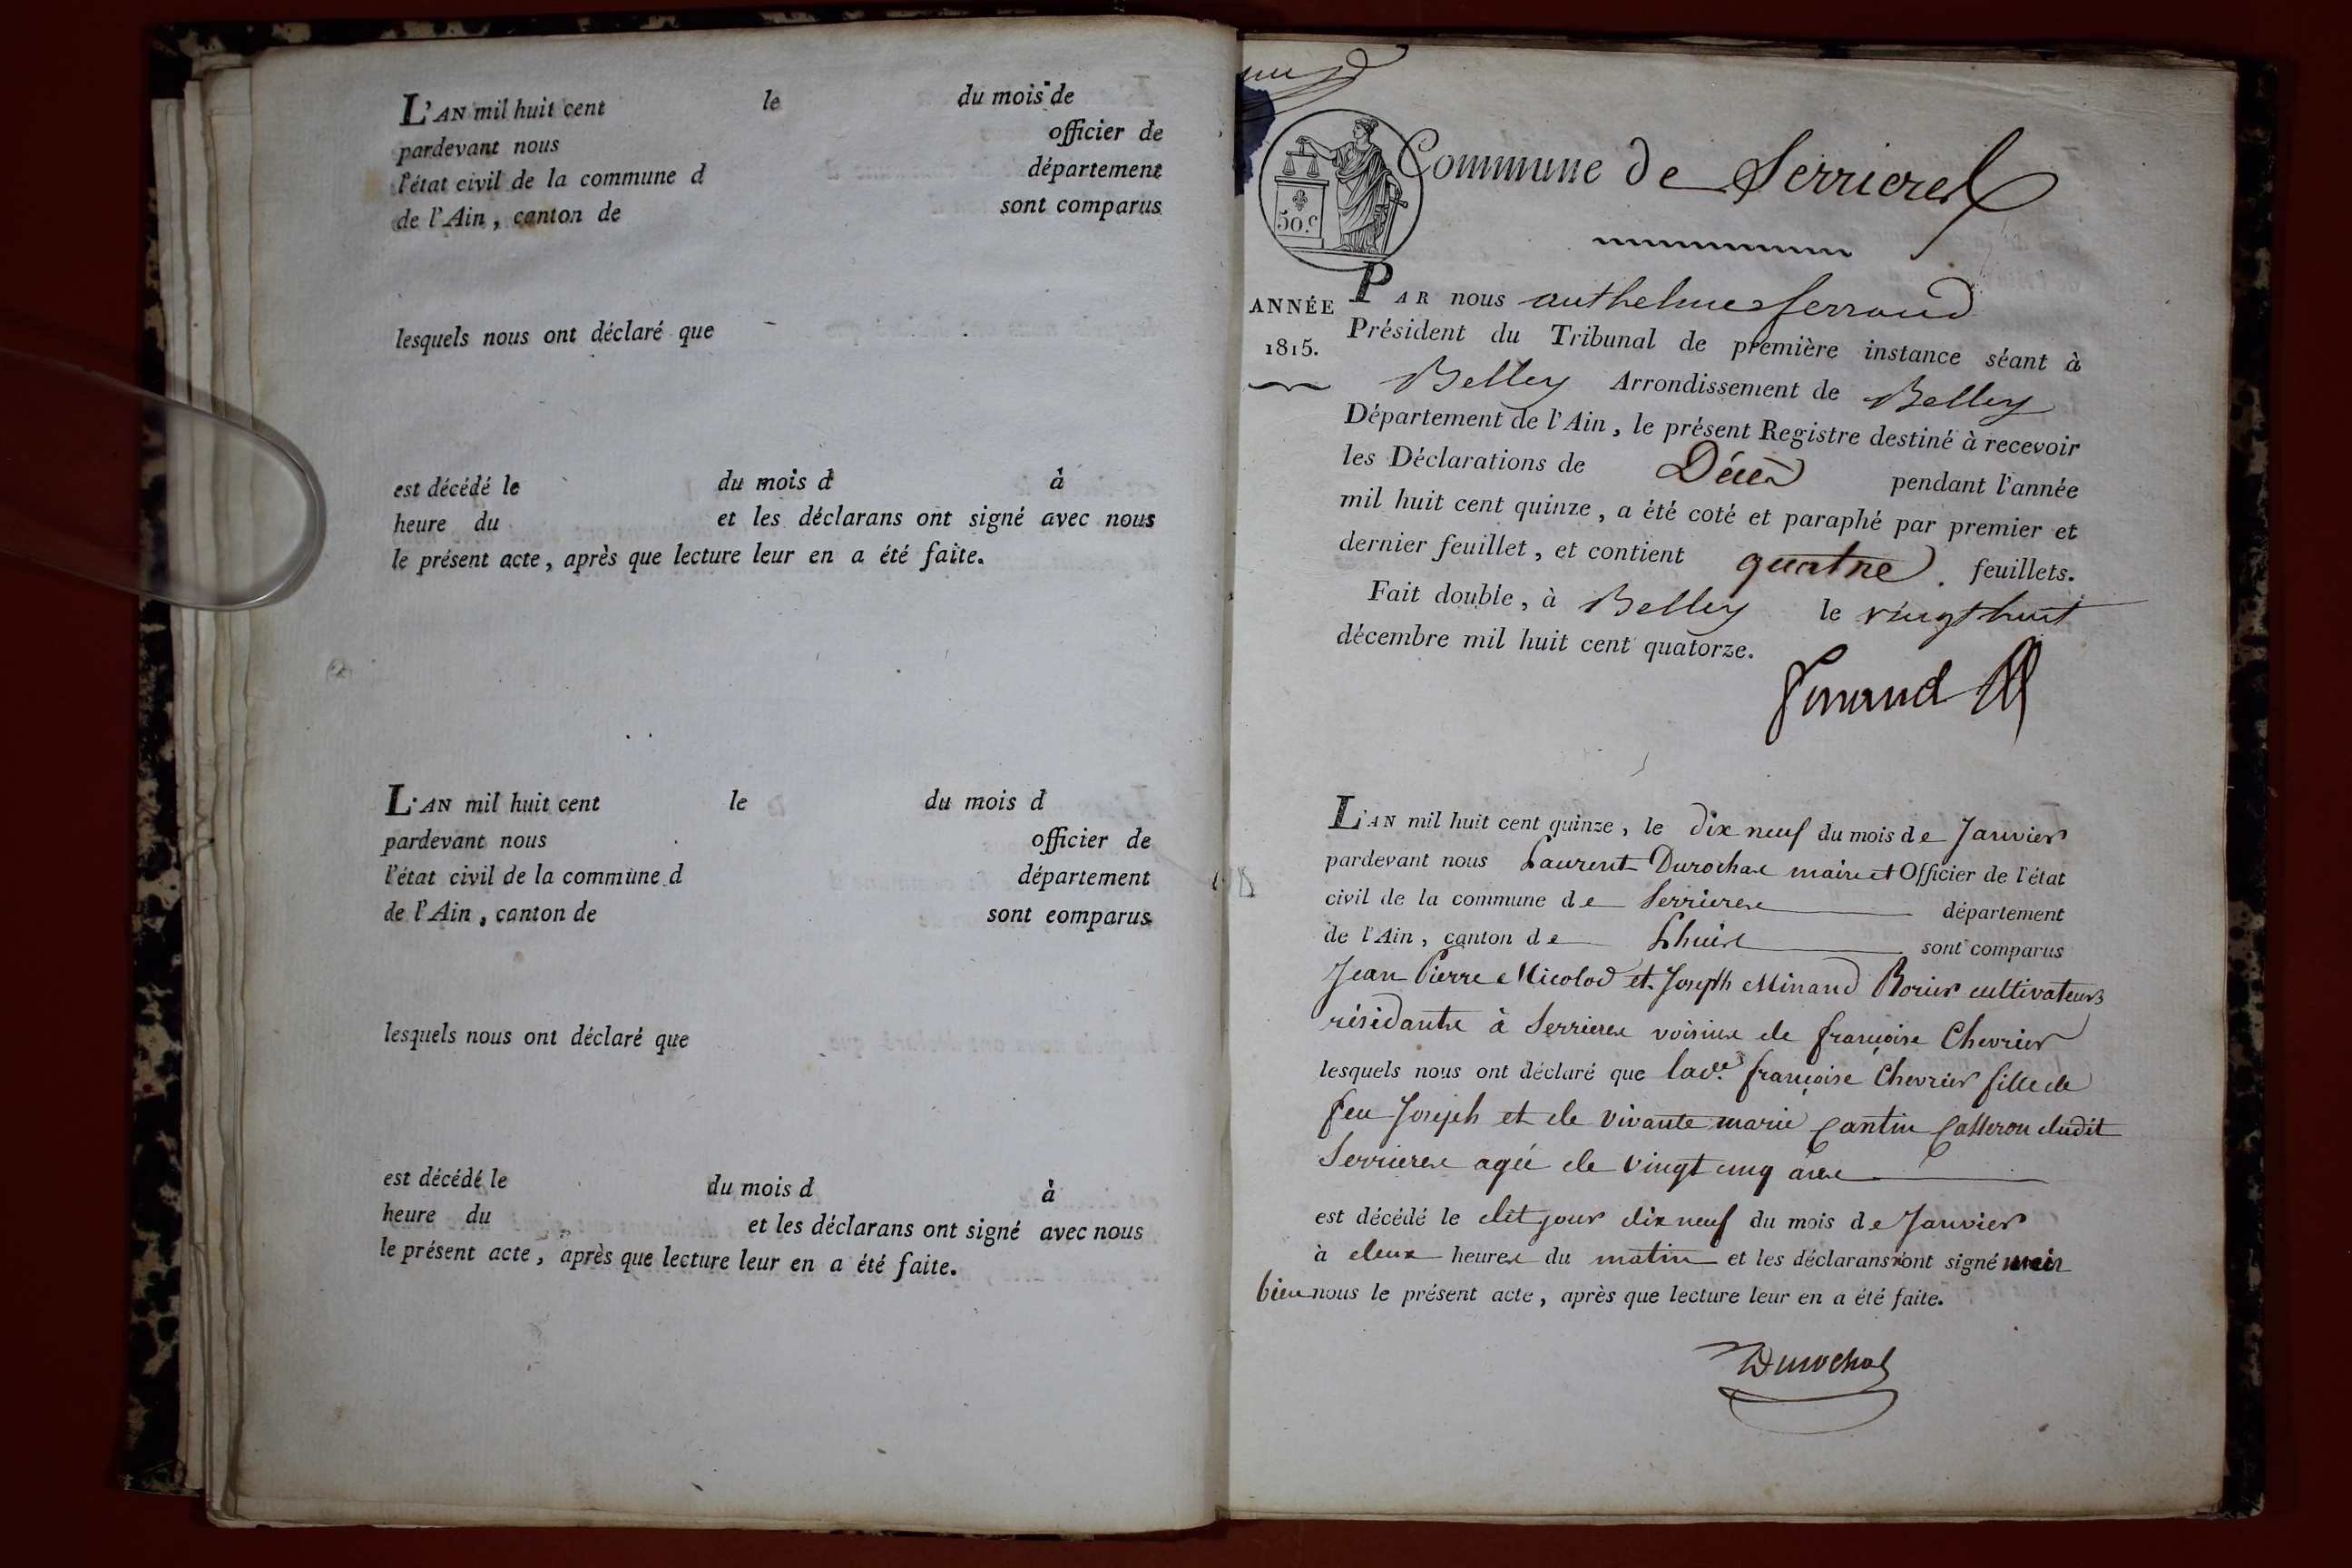 L'AN mil huit cent le du mois de
pardevant nous officier de
l'état civil de la commune d département
de l'Ain, canton de sont comparus
lesquels nous ont déclaré que
est décédé le du mois d à
heure du et les déclarans ont signé avec nous
le présent acte, après que lecture leur en a été faite.
L'AN mil huit cent le du mois d
pardevant nous officier de
l'état civil de la commune d département
de l'Ain, canton de sont comparus
lesquels nous ont déclaré que
est décédé le du mois d à
heure du et les déclarans ont signé avec nous
le présent acte, après que lecture leur en a été faite.
50.c
Commune de Serrieres
ANNÉE
1815.
PAR nous anthelme ferrand
Président du Tribunal de première instance séant à
Belley Arrondissement de Belley
Département de l'Ain, le présent Registre destiné à recevoir
les Déclarations de Décès pendant l'année
mil huit cent quinze, a été coté et paraphé par premier et
dernier feuillet, et contient quatre feuillets.
Fait double, à Belley le vingt huit
décembre mil huit cent quatorze.
ferrand
L'AN mil huit cent quinze, le dix neuf du mois de Janvier
pardevant nous Laurent Durochat maire et Officier de l'état
civil de la commune de Serrieres département
de l'Ain, canton de Lhuis sont comparus
Jean Pierre Nicolod et Joseph Minand Borier cultivateurs
résidants à Serrieres voisins de françoise Chevrier
lesquels nous ont déclaré que lad.e françoise Chevrier fille de
feu Joseph et de vivante marie Cantin Casseron dudit
Serrieres agée de vingt cinq ans
est décédé le dit jour dix neuf du mois de Janvier
à deux heures du matin et les déclarans n'ont signé mais
bien nous le présent acte, après que lecture leur en a été faite.
Durochat